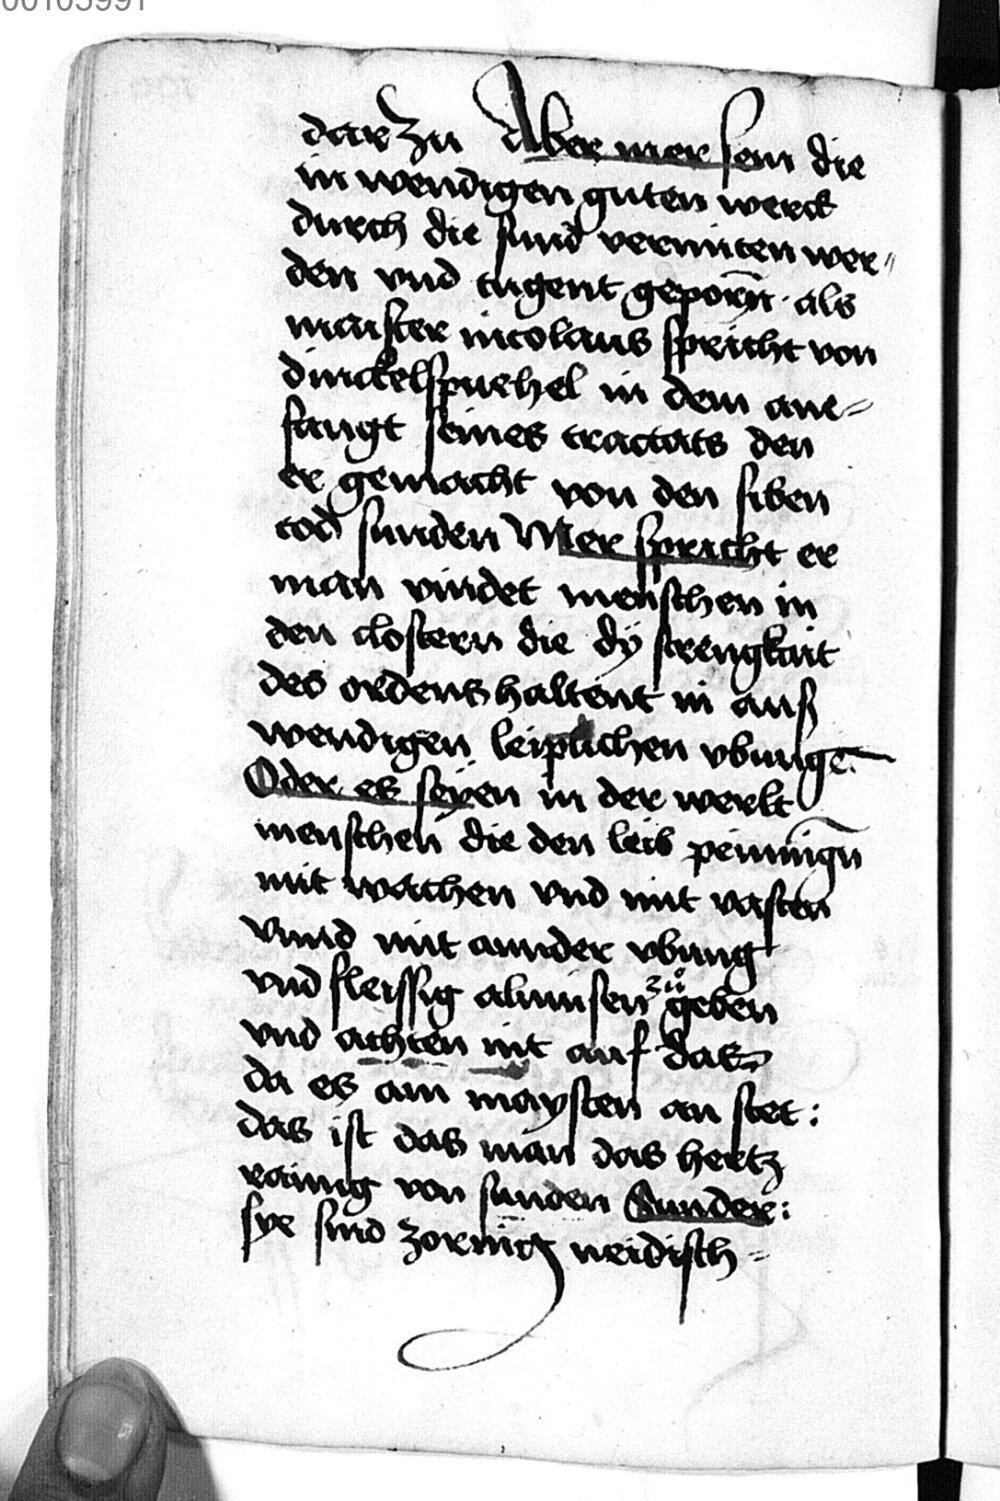 00103991
darzu Aber mer sein die
in wendigen guten werck
durch die sund vermiten wer⸗
den vnd tugent geporn̄ · als
maister nicolaus spricht von
dinckelspuehel in dem ane⸗
fangt seines tractats den
er gemacht von den siben
tod sunden Mer spricht er
man vindet menschen in
den clostern die dÿ strengkait
des ordens haltent in auß
wendigen leiplichen vbungē
Oder es seÿen in der werlt
menschen die den leib peinnign̄
mit wachen vnd mit vasten
vnnd mit annder vbung
vnd fleissig almusen zů geben
vnd achten nit auf das
da es am maysten an stet :
das ist das man das hertz
rainig von sunden Sunder :
sye sind zornig neidisch ⸗